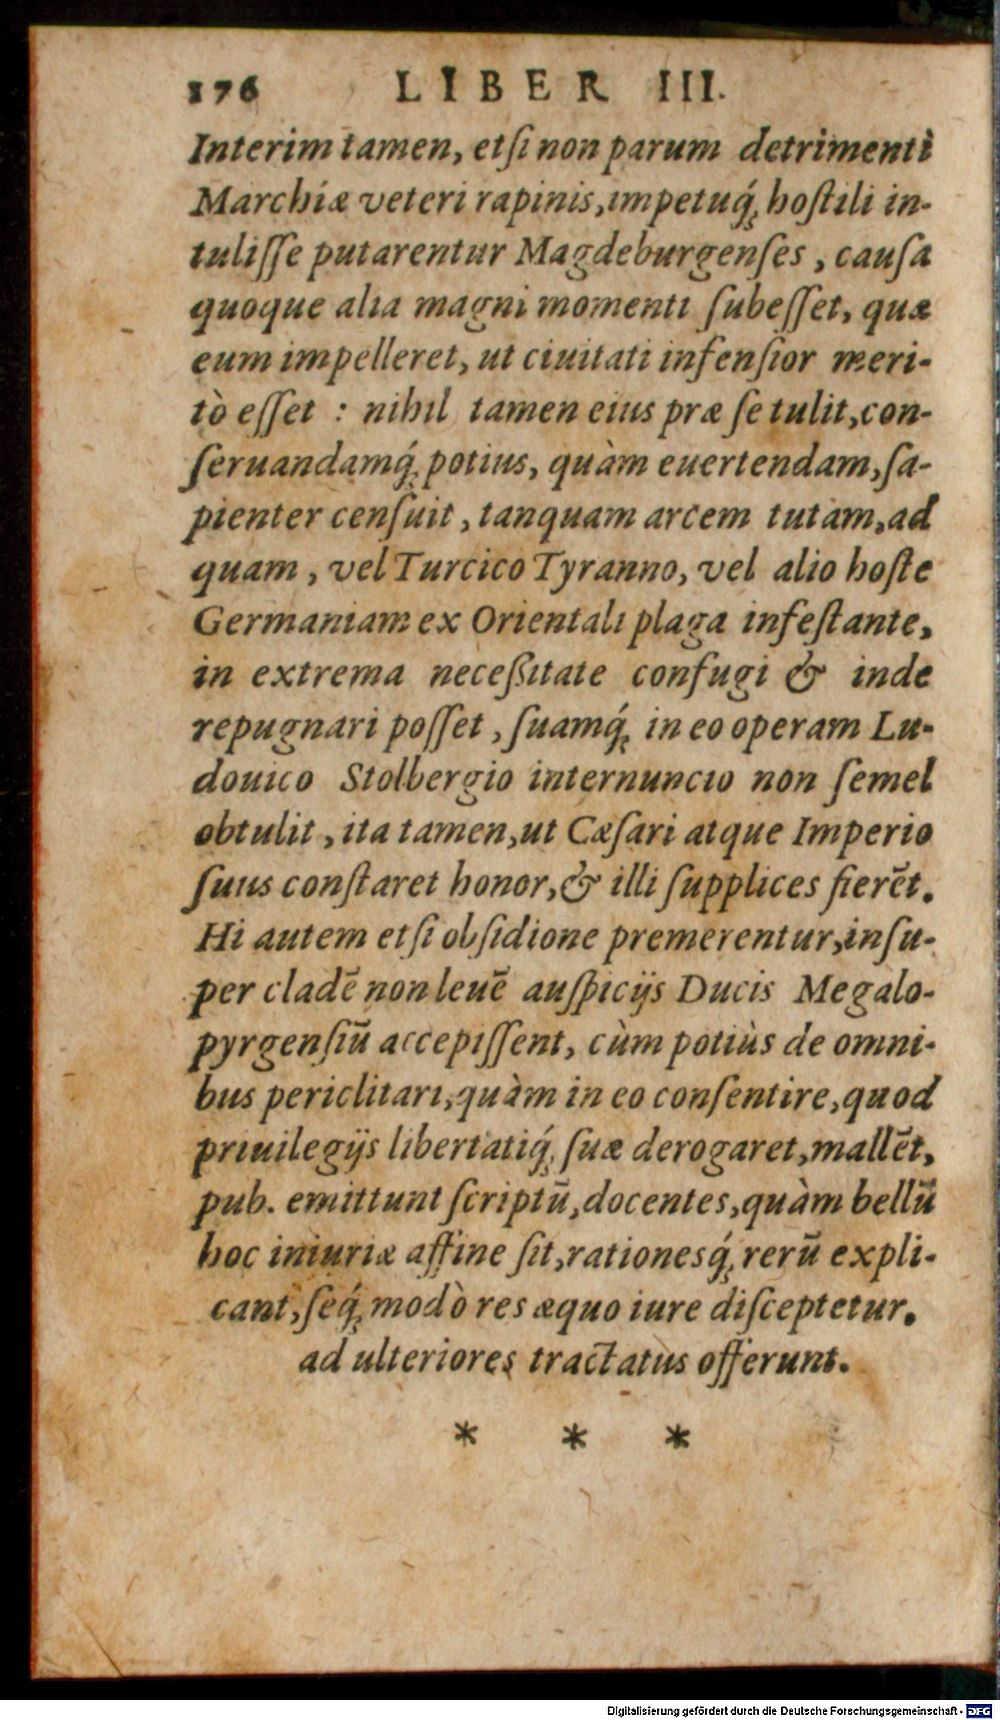 176 LIBER III.
Interim tamen, etſi non parum detrimenti
Marchiæ veteri rapinis, impetuq́ꝫ hoſtili in-
tuliſſe putarentur Magdeburgenſes, cauſa
quoque alia magni momenti ſubeſſet, quæ
eum impelleret, ut ciuitati infenſior meri-
tò eſſet : nihil tamen eius præ ſe tulit, con-
ſeruandamq́ꝫ potius, quàm euertendam, ſa-
pienter cenſuit, tanquam arcem tutam, ad
quam, vel Turcico Tyranno, vel alio hoſte
Germaniam ex Orientali plaga infeſtante,
in extrema neceßitate confugi & inde
repugnari poſſet, ſuamq́ꝫ in eo operam Lu-
douico Stolbergio internuncio non ſemel
obtulit, ita tamen, ut Cæſari atque Imperio
ſuus conſtaret honor, & illi ſupplices fierēt.
Hi autem etſi obſidione premerentur, inſu-
per cladē non leuē auſpicijs Ducis Megalo-
pyrgenſiū accepiſſent, cùm potiùs de omni-
bus periclitari, quàm in eo conſentire, quod
priuilegijs libertatiq́ꝫ ſuæ derogaret, mallēt,
pub. emittunt ſcriptū, docentes, quàm bellū
hoc iniuriæ affine ſit, rationesq́ꝫ rerū expli-
cant, ſeq́ꝫ modò res æquo iure diſceptetur.
ad ulteriores tractatus offerunt.
* * *
Digitalisierung gefördert durch die Deutsche Forschungsgemeinschaft - DFG